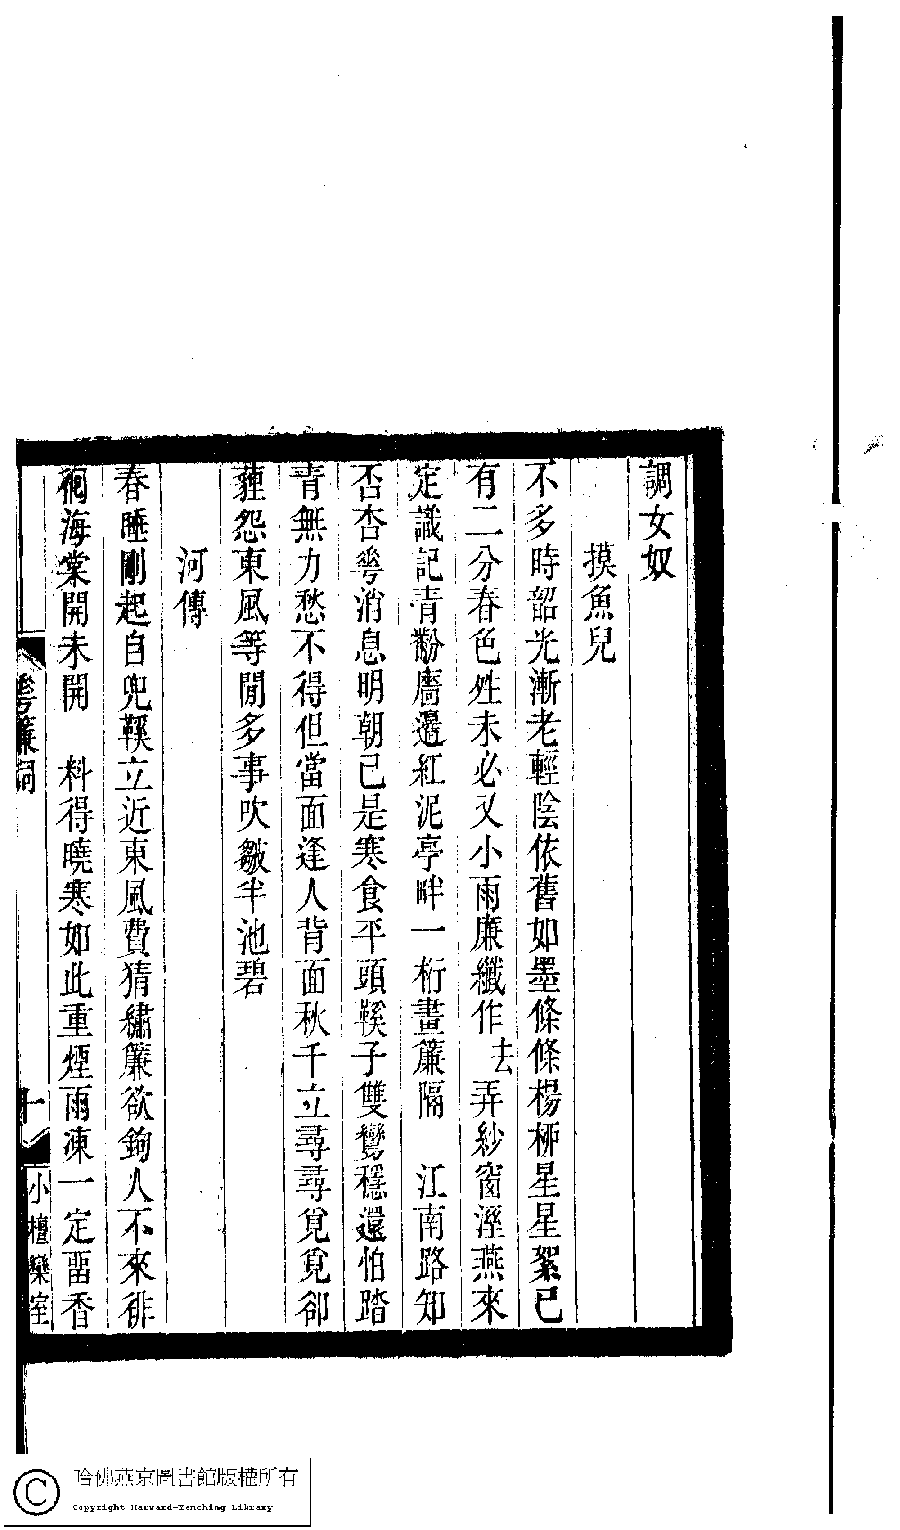 調女奴
摸魚兒
不多時韶光漸老輕陰依舊如墨條條楊柳星星絮已
有二分春色姓未必又小雨廉纖作去弄紗窗溼燕來
定識記青黺牆邊紅泥亭畔一桁畫簾隔　江南路知
否杏𠌶消息明朝已是寒食平頭鞵子雙鸞穩還怕踏
青無力愁不得但當面逢人背面秋千立尋尋覓覓卻
薶怨東風等閒多事吹皺半池碧
河傳
春睡剛起自兜鞵立近東風費猜繡簾欲鉤人不來徘
徊海棠開未開　料得曉寒如此重煙雨凍一定畱香
𠌶簾詞
十
小檀欒室
哈佛燕京圖書館版權所有
Copyright Harvard-Yenching Library